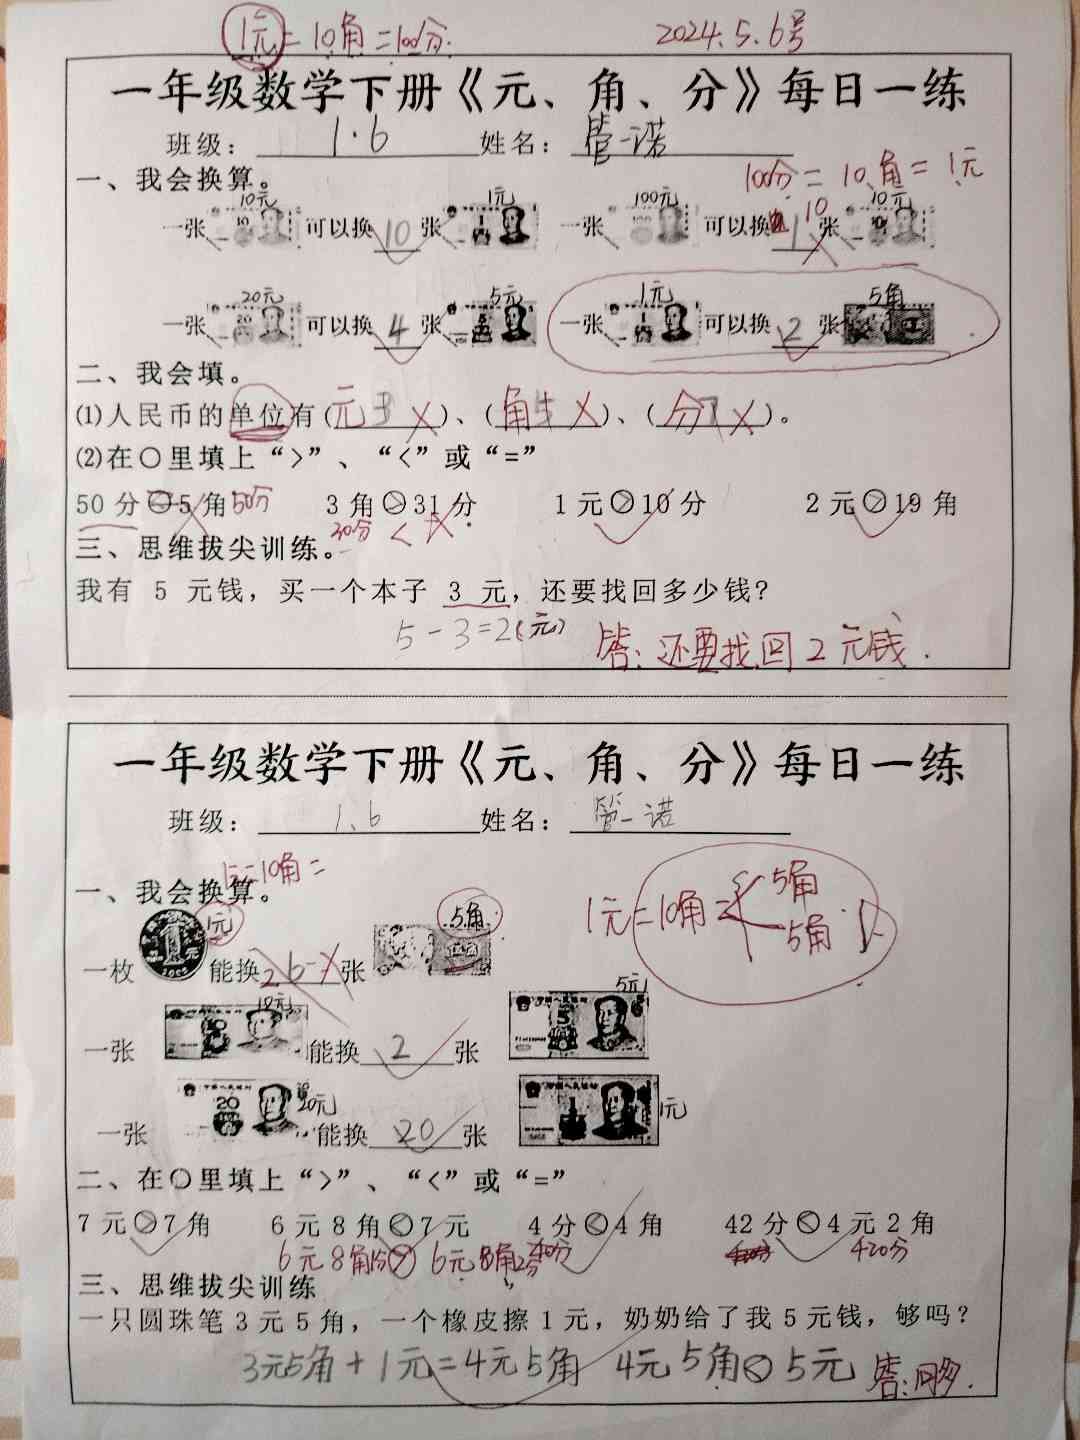 1元=10角=100分.
2024.5.6号
一年级数学下册《元、角、分》每日一练
班级： 1.6 姓名： 管一诺
一、我会换算。 100分=10角=1元
10元 1元 100元 10元
一张 可以换 10 张 一张 可以换 1 10 张
20元 5元 1元 5角
一张 可以换 4 张 一张 可以换 2 张
二、我会填。
⑴人民币的单位有(元)、(角5)、(分)。
⑵在○里填上“>”、“<”或“=”
50分 5角 50分 3角>31分 1元>10分 2元>19角
30分 <
三、思维拔尖训练。
我有 5 元钱，买一个本子 3 元，还要找回多少钱？
5-3=2(元) 答：还要找回2元钱.
一年级数学下册《元、角、分》每日一练
班级： 1.6 姓名： 管一诺
1元=10角=
一、我会换算。
1元 5角 1元=10角= 5角
5角
一枚 能换 张
10元 5元
一张 能换 2 张
20元 1元
一张 能换 20 张
二、在○里填上“>”、“<”或“=”
7元>7角 6元8角<7元 4分<4角 42分<4元2角
6元8角 6元8角2分 40分 420分
三、思维拔尖训练
一只圆珠笔3元5角，一个橡皮擦1元，奶奶给了我5元钱，够吗？
3元5角+1元=4元5角 4元5角<5元 答：够.